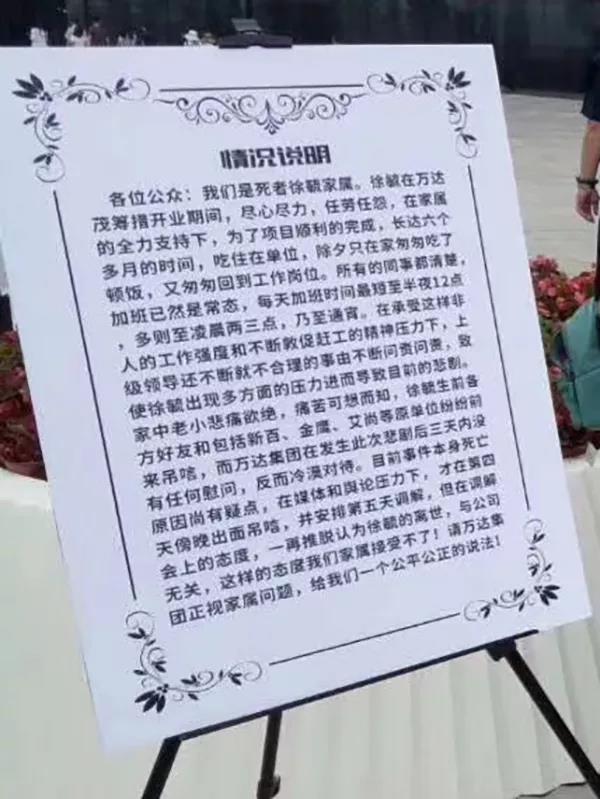 情况说明
各位公众：我们是死者徐毓家属。徐毓在万达
茂筹措开业期间，尽心尽力，任劳任怨，在家属
的全力支持下，为了项目顺利的完成，长达六个
多月的时间，吃住在单位，除夕只在家匆匆吃了
顿饭，又匆匆回到工作岗位。所有的同事都清楚，
加班已然是常态，每天加班时间最短至半夜12点
，多则至凌晨两三点，乃至通宵。在承受这样非
人的工作强度和不断敦促赶工的精神压力下，上
级领导还不断就不合理的事由不断问责问责，致
使徐毓出现多方面的压力进而导致目前的悲剧。
家中老小悲痛欲绝，痛苦可想而知，徐毓生前各
方好友和包括新百、金鹰、艾尚等原单位纷纷前
来吊唁，而万达集团在发生此次悲剧后三天内没
有任何慰问，反而冷漠对待。目前事件本身死亡
原因尚有疑点，在媒体和舆论压力下，才在第四
天傍晚出面吊唁，并安排第五天调解，但在调解
会上的态度，一再推脱认为徐毓的离世，与公司
无关，这样的态度我们家属接受不了！请万达集
团正视家属问题，给我们一个公平公正的说法！